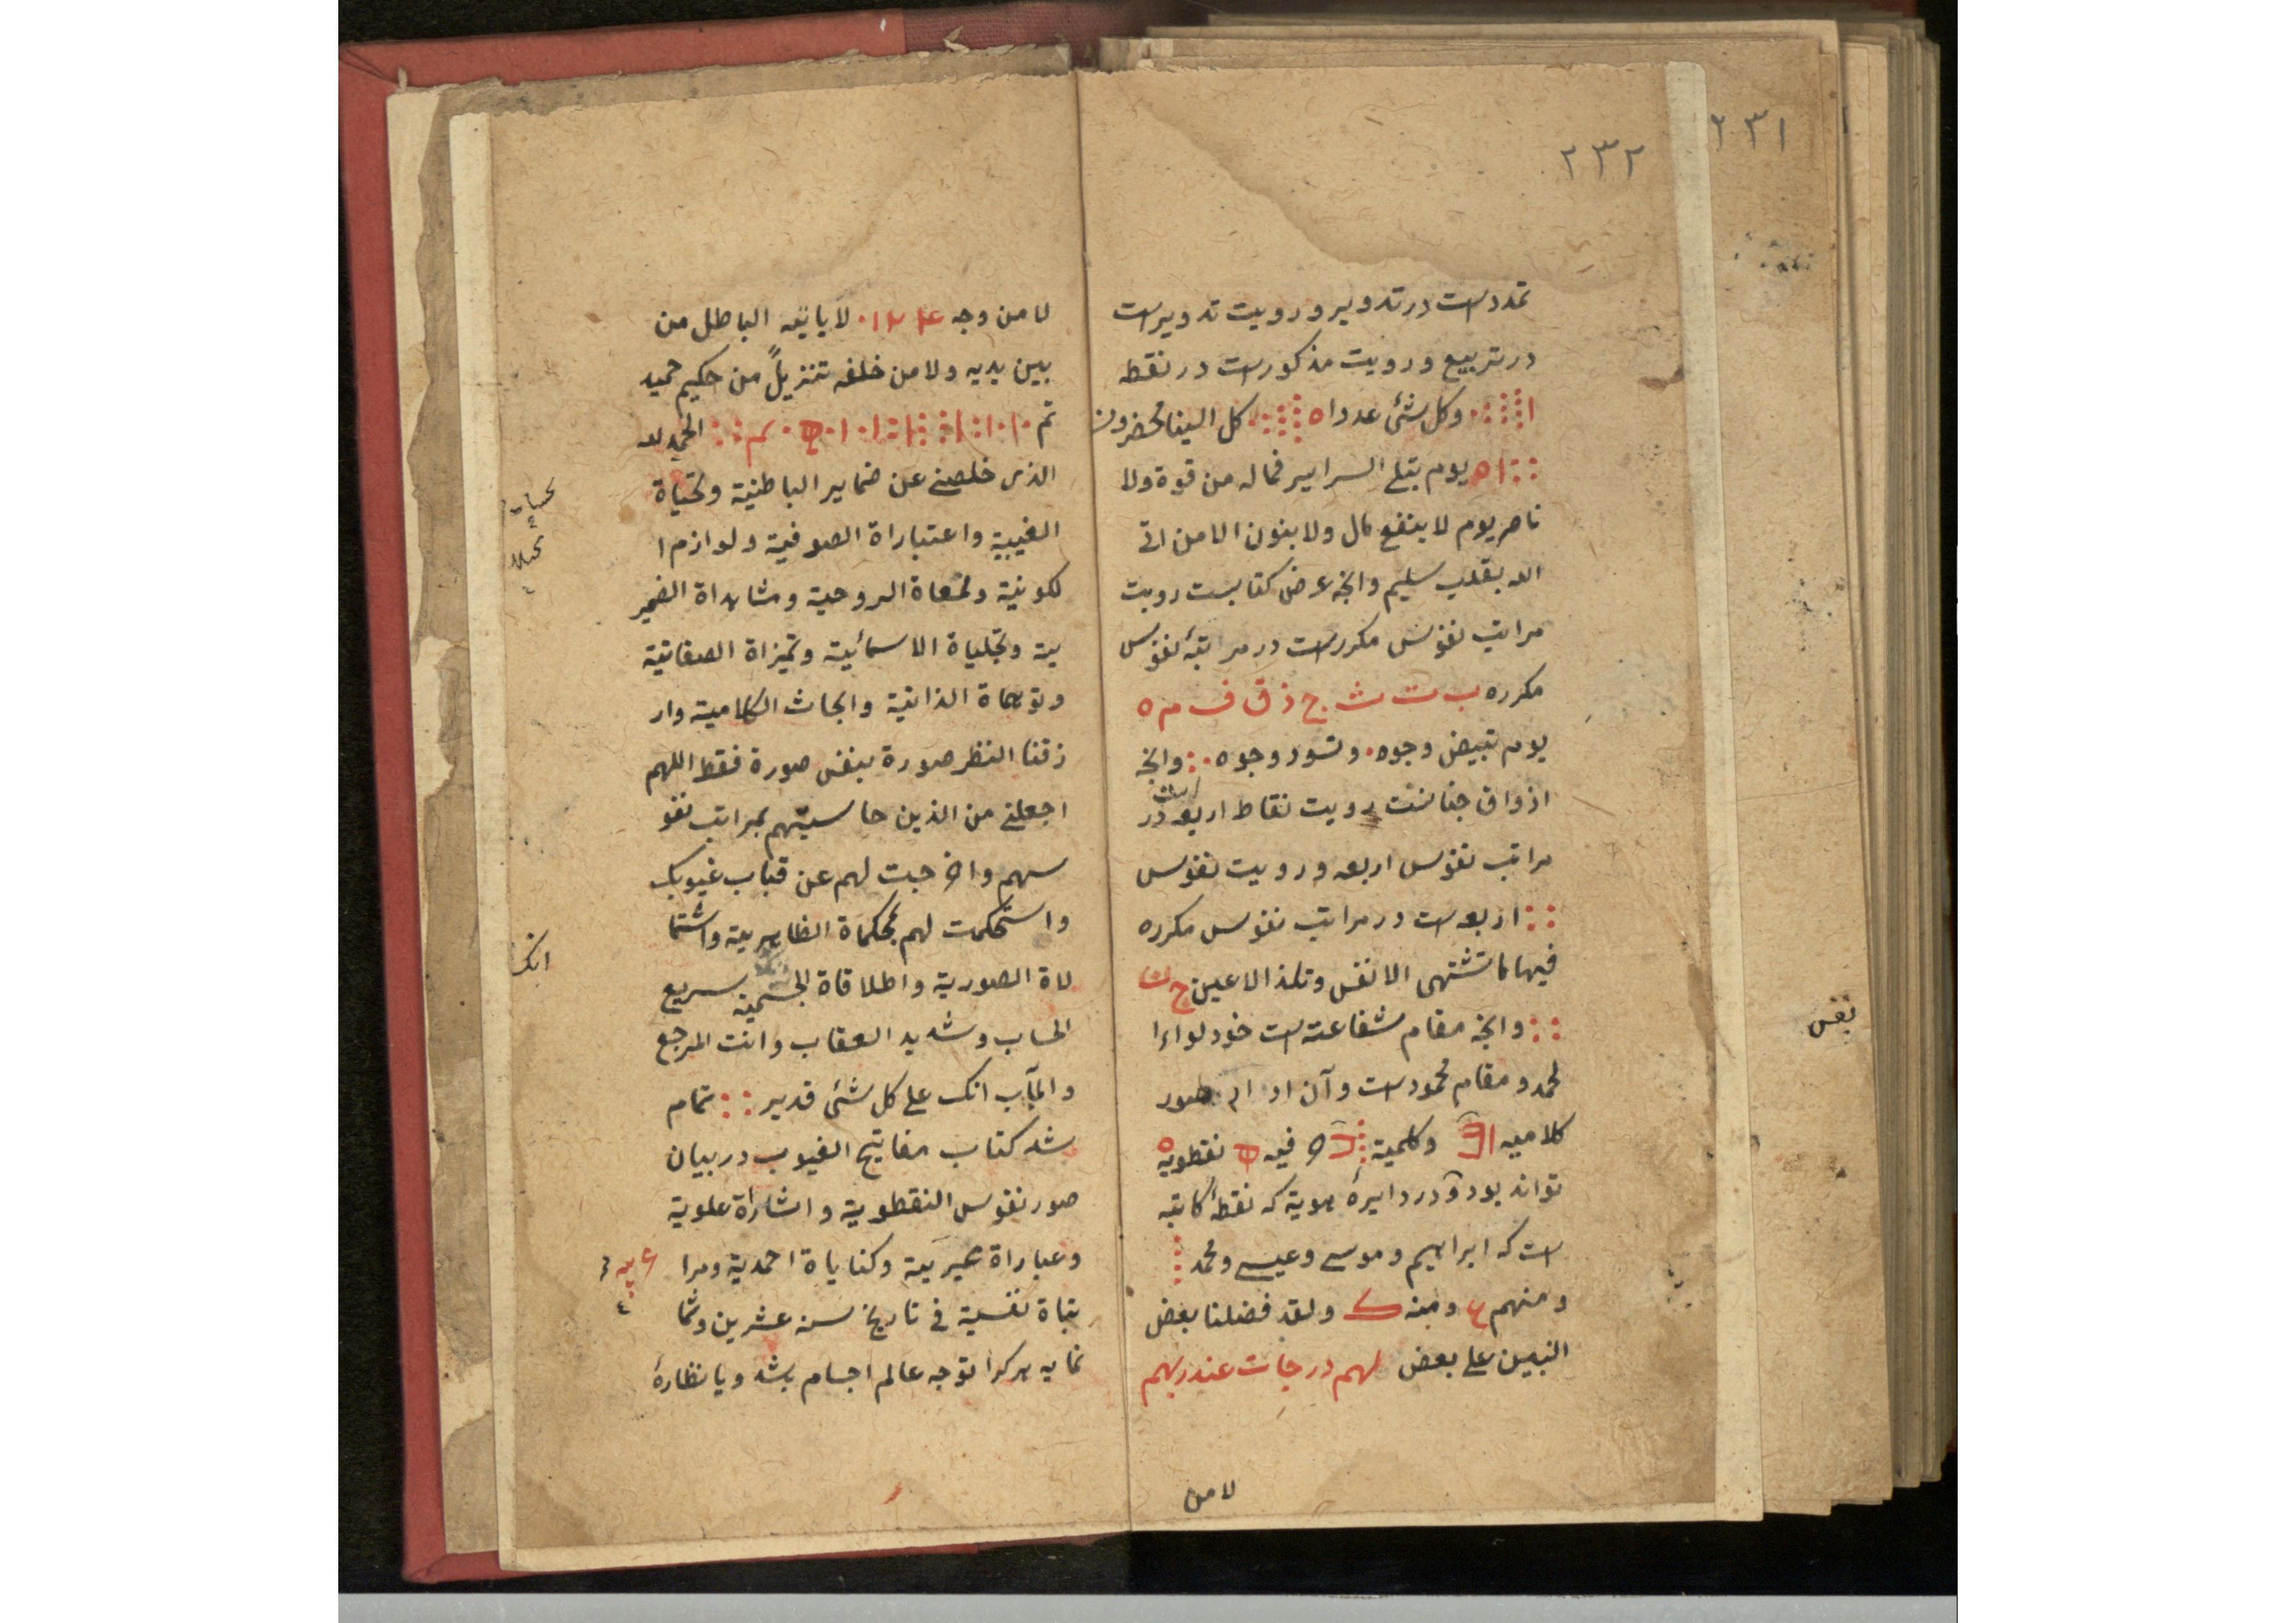 ٢٣١
٢٣٢
تمدد است در تدویر و رویت تدویر است
در تربیع و رویت مذکور است در نقطه
ا وکل شئ عددا ه کل الینا محضرون
ا ه یوم تبلی السرایر فماله من قوة ولا
ناصر یوم لا ینفع مال ولا بنون الا من اتی
الله بقلب سلیم وانچه عرض کتابست رویت
مراتب نفوس مکرر است در مراتبهٔ نفوس
مکرره ب ت ث ج ذ ق ف م ه
یوم تبیض وجوه وتسود وجوه وانچه
اذواق جنانست رویت نقاط اربعه در
مراتب نفوس اربعه و رویت نفوس
اربعه است در مراتب نفوس مکرره
فیها ما تشتهی الانفس وتلذ الاعین ج
وانچه مقام شفاعتست خود لواءا
لحمد و مقام محمود است و آن صور
کلامیه وکلمیة فیه نقطویه
تواند بود و در دایرهٔ هویة که نقطهٔ کاتبه
است که ابراهیم و موسی و عیسی و محمد
ومنهم ومنه ک ولقد فضلنا بعض
النبیین علی بعض لهم درجات عند ربهم
لا من
نفس
لا من وجه لا یاتیه الباطل من
بین یدیه ولا من خلفه تنزیلً من حکیم حمید
تم الحمد لله
الذی خلصنی عن ضمایر الباطنیة وتحیاة
الغیبیة واعتباراة الصوفیة ولوازم ا
لکونیة ولمعاة الروحیة ومشاهداة الضمیر
یة وتجلیاة الاسمائیة وتمیزاة الصفاتیة
وتوهماة الذاتیة وابحاث الکلامیة وار
زقنا النظر صورة بنفس صورة فقط اللهم
اجعلنی من الذین حاسبتهم بمراتب نفو
سهم واخرجت لهم عن قباب غیوبک
واستحکمت لهم بمحکماة الظاهریة واشتما
لاة الصوریة واطلاقاة الجسمیة سریع
الحساب وشدید العقاب وانت المرجع
والمآب انک علی کل شئ قدیر تمام
شد کتاب مفاتیح الغیوب در بیان
صور نفوس النقطویة واشاراة علویة
وعباراة وکنایاة احمدیة ومرا
تباة نفسیة فی تاریخ سنه عشرین وثما
نمایه هرکرا توجه عالم اجسام باشد و یا نظارهٔ
انک